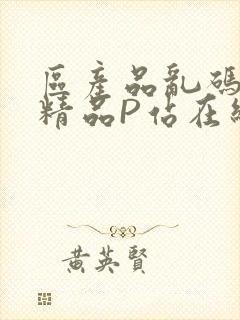 區產品亂碼
精品P佔在線
黃英賢